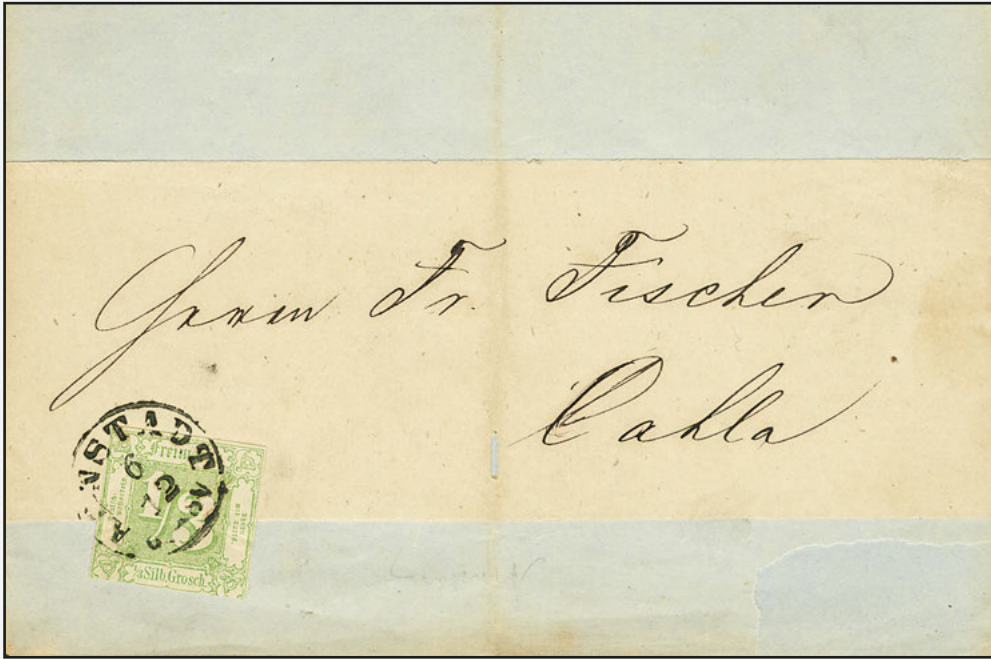 Herrn Fr. Fischer
Cahla
ARNSTADT
Freim
1/3
1/3 Silb. Grosch.